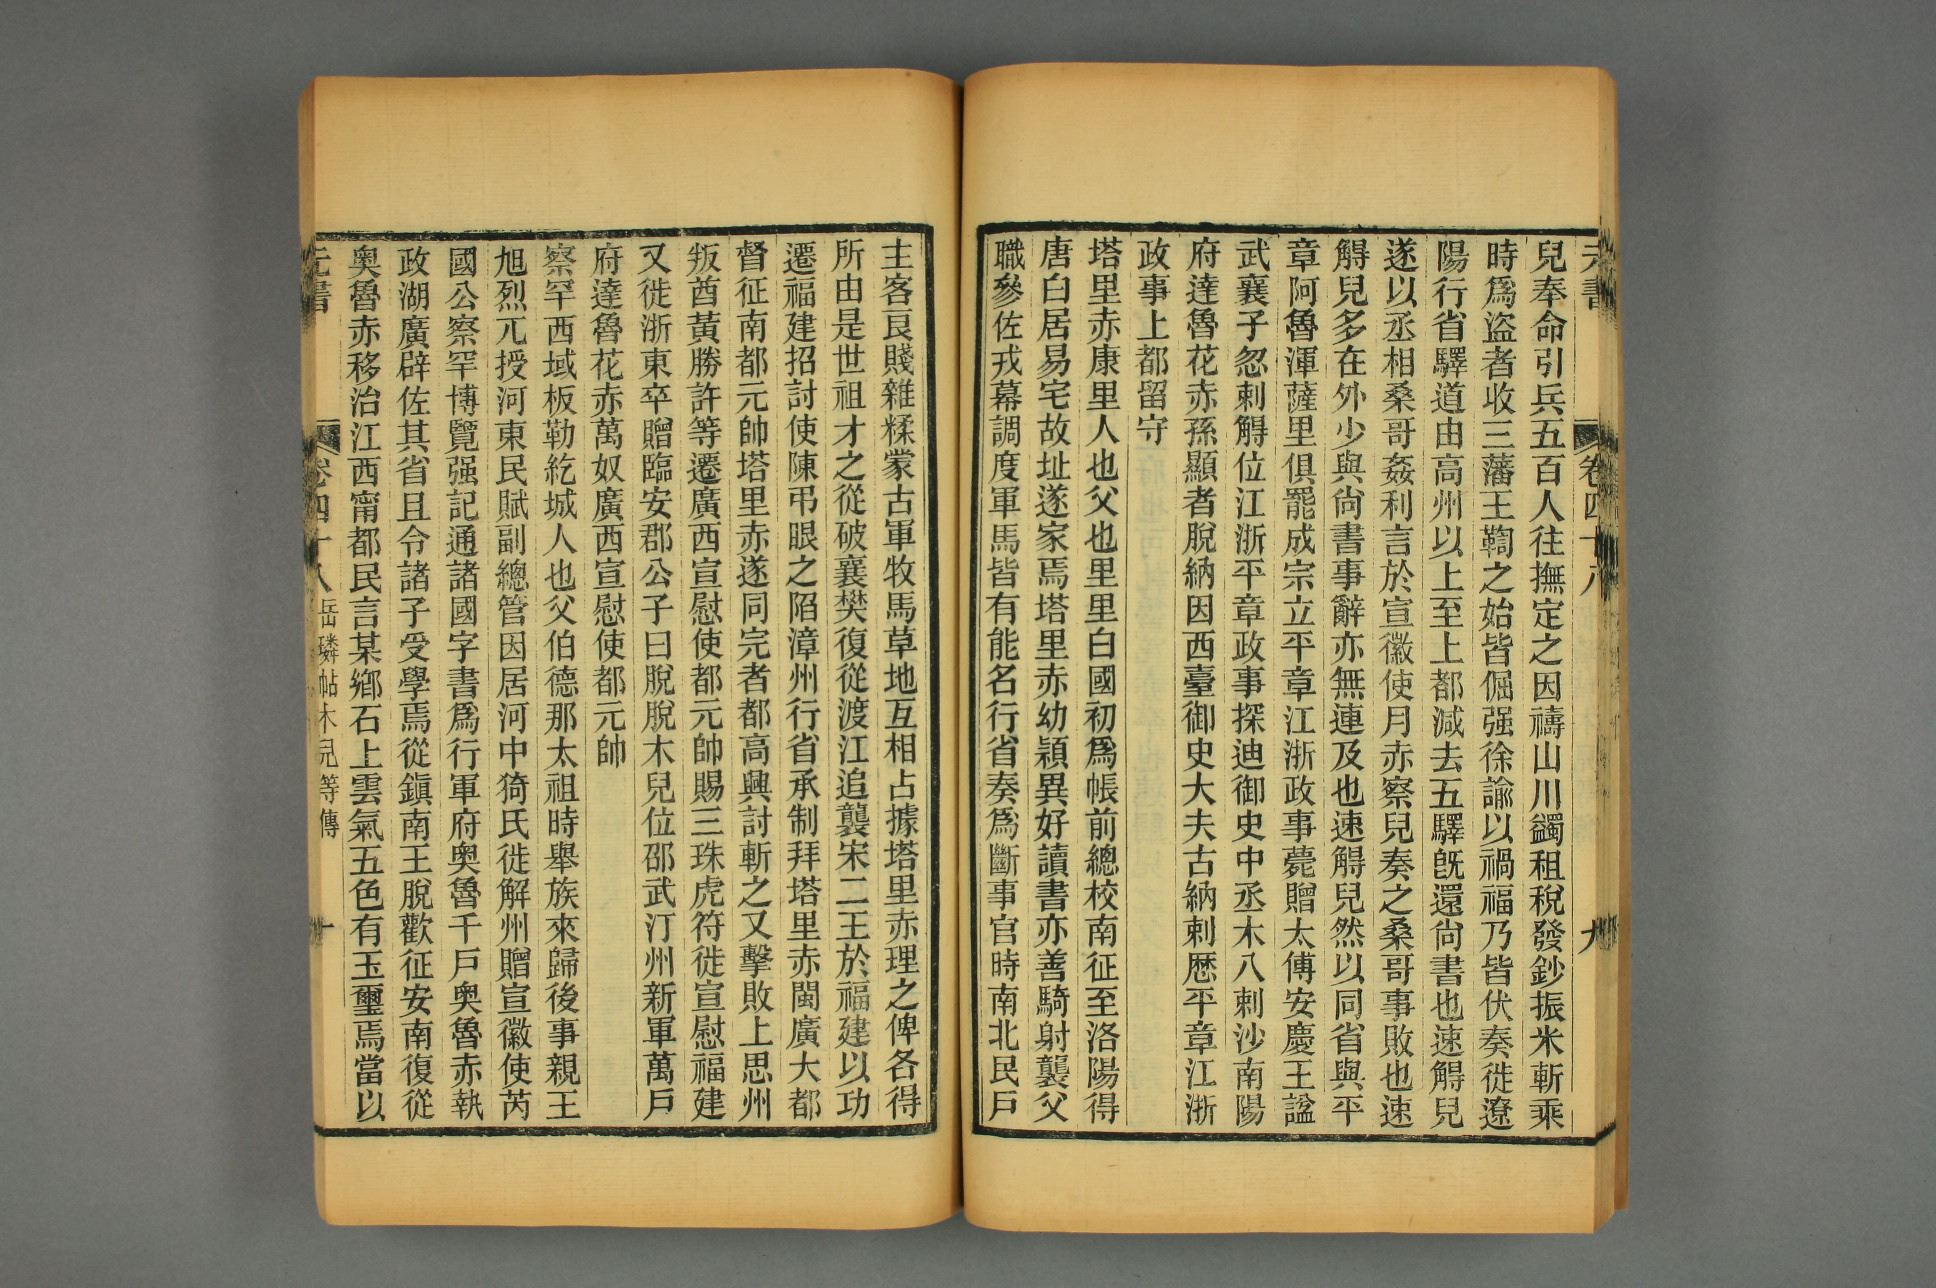 元書 卷四十八 九
兒奉命引兵五百人往撫定之因禱山川蠲租稅發鈔振米斬乘
時爲盜者收三藩王鞫之始皆倔强徐諭以禍福乃皆伏奏徙遼
陽行省驛道由高州以上至上都減去五驛旣還尙書也速䚟兒
遂以丞相桑哥姦利言於宣徽使月赤察兒奏之桑哥事敗也速
䚟兒多在外少與尙書事辭亦無連及也速䚟兒然以同省與平
章阿魯渾薩里俱罷成宗立平章江浙政事薨贈太傅安慶王諡
武襄子忽剌䚟位江浙平章政事探迪御史中丞木八剌沙南陽
府達魯花赤孫顯者脫納因西臺御史大夫古納剌歷平章江浙
政事上都留守
塔里赤康里人也父也里里白國初爲帳前總校南征至洛陽得
唐白居易宅故址遂家焉塔里赤幼穎異好讀書亦善騎射襲父
職參佐戎幕調度軍馬皆有能名行省奏爲斷事官時南北民戶
主客良賤雜糅蒙古軍牧馬草地互相占據塔里赤理之俾各得
所由是世祖才之從破襄樊復從渡江追襲宋二王於福建以功
遷福建招討使陳弔眼之陷漳州行省承制拜塔里赤閩廣大都
督征南都元帥塔里赤遂同完者都高興討斬之又擊敗上思州
叛酋黃勝許等遷廣西宣慰使都元帥賜三珠虎符徙宣慰福建
又徙浙東卒贈臨安郡公子曰脫脫木兒位邵武汀州新軍萬戶
府達魯花赤萬奴廣西宣慰使都元帥
察罕西域板勒紇城人也父伯德那太祖時舉族來歸後事親王
旭烈兀授河東民賦副總管因居河中猗氏徙解州贈宣徽使芮
國公察罕博覽强記通諸國字書爲行軍府奧魯千戶奧魯赤執
政湖廣辟佐其省且令諸子受學焉從鎭南王脫歡征安南復從
奧魯赤移治江西甯都民言某鄕石上雲氣五色有玉璽焉當以
元書 卷四十八 岳璘帖木兒等傳 十